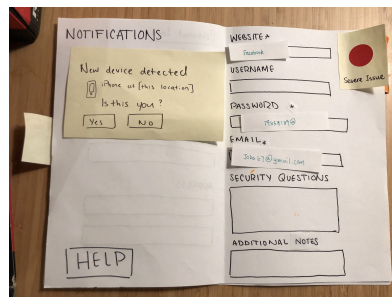 NOTIFICATIONS
New device detected
iPhone at [this location]
Is this you?
Yes
No
HELP
WEBSITE*
Facebook
USERNAME
PASSWORD *
EMAIL*
SECURITY QUESTIONS
ADDITIONAL NOTES
Severe Issue